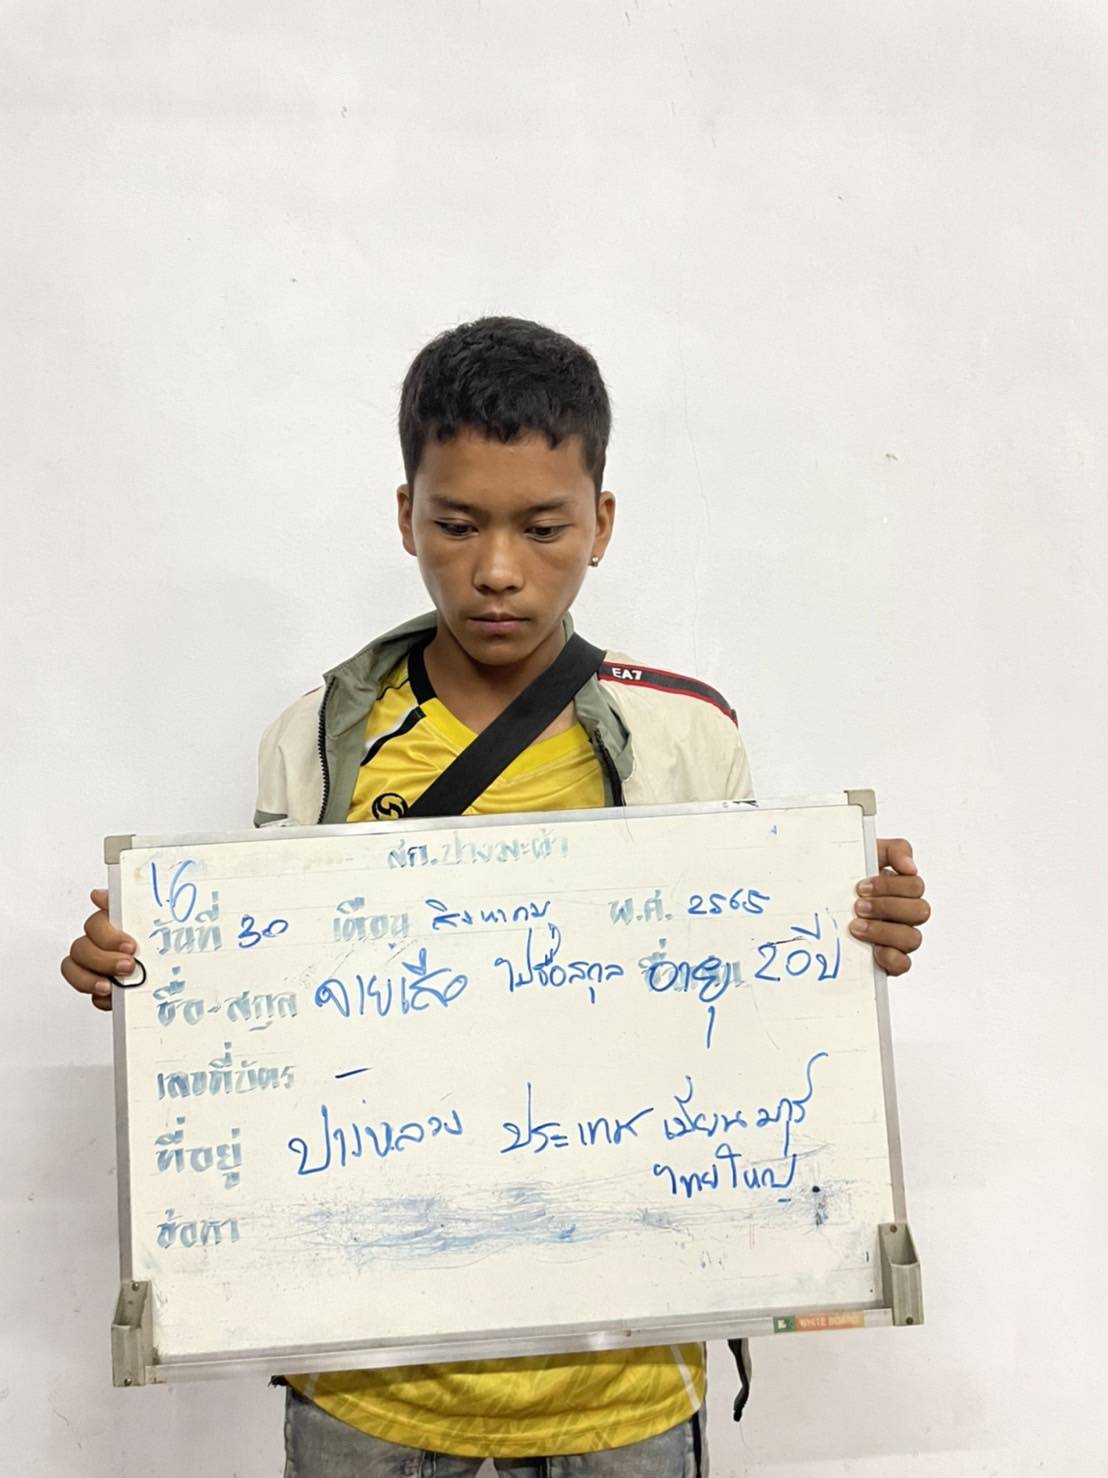 EA7
สภ.ปางมะผ้า
16
วันที่ 30 เดือน สิงหาคม พ.ศ. 2565
ชื่อ-สกุล จายเสือ ไม่มีชื่อสกุล อายุ 20 ปี
เลขที่บัตร -
ที่อยู่ ปางหลวง ประเทศ เมียนมาร์
ไทยใหญ่
ข้อหา
WHITE BOARD